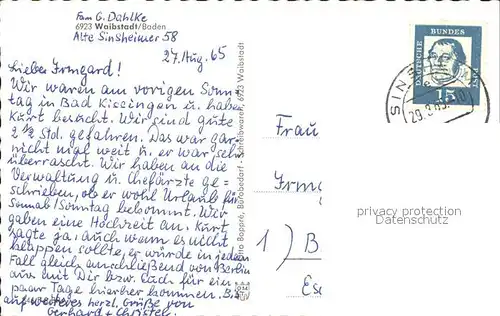 Fam G. Dahlke
6923 Waibstadt/Baden
Alte Sinsheimer 58
27. Aug. 65
Liebes Irmgard!
Wir waren am vorigen Sonn=
tag in Bad Kissingen u. haben
Kurt besucht. Wir sind gute
2 ½ Std. gefahren. Das war gar
nicht mal weit u. er war sehr
überrascht. Wir haben an die
Verwaltung u. Chefärzte ge=
schrieben, ob er wohl Urlaub für
Sonnab/Sonntag bekommt. Wir
gaben eine Hochzeit an. Kurt
sagte ja. auch wenn es nicht
klappen sollte, er würde in jedem
Fall gleich anschließend von Berlin
aus mit Dir bzw. Euch für ein
paar Tage hierher kommen. Bis
auf weiteres herzl. Grüße von
Gerhard + Christel.
Otto Boppré, Bürobedarf - Schreibwaren, 6923 Waibstadt
DEUTSCHE
BUNDES
POST
15
SINS
Frau
Irm
1) B
Es
privacy protection
Datenschutz